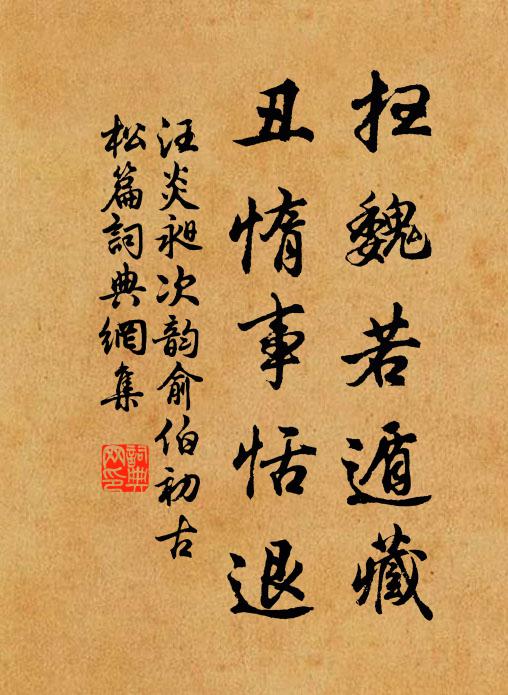 抂魏若遁藏
丑惰事恬退
汪炎昶次韵俞伯初古
松篇詞典網集
詞典
网印